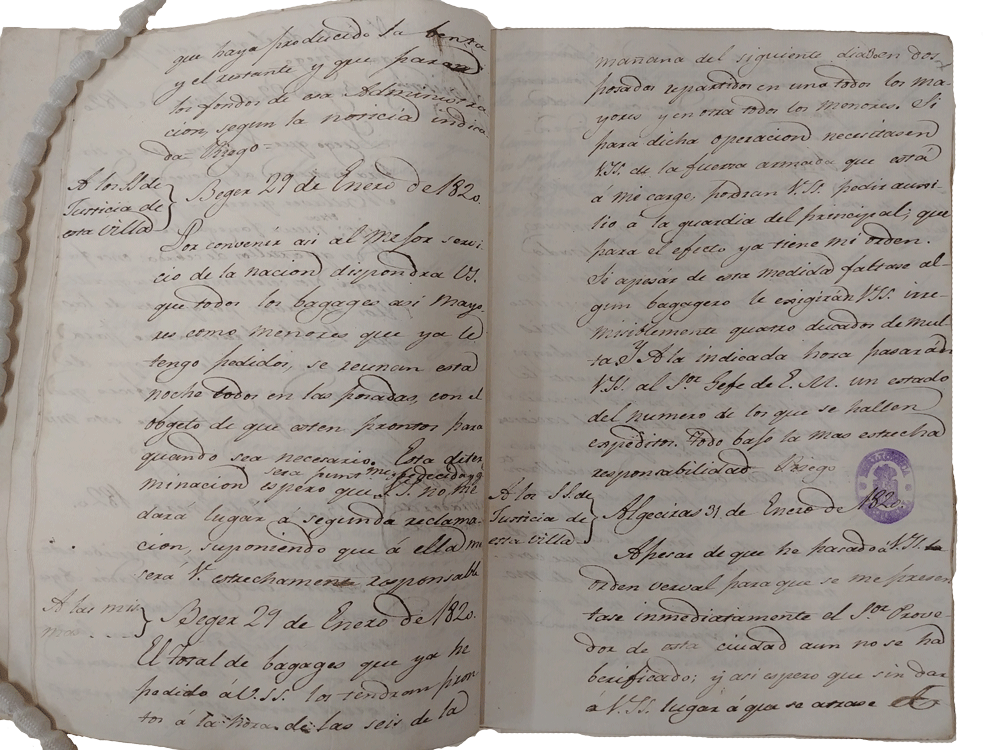 que haya producido la benta
y el restante y que para
los fondos de esa Administra
cion, segun la noticia indica
da Riego=
A los SS. de
Justicia de
esta villa
Beger 29 de Enero de 1820.
Por convenir asi al mejor servi
cio de la nacion dispondra VS.
que todos los bagages asi mayo
res como menores que ya le
tengo pedidos, se reunan esta
noche todos en las posadas, con el
obgeto de que esten prontos para
quando sea necesario. Esta diter
minacion espero que
sera
no me
dara lugar á segunda reclama-
cion, suponiendo que á ella me
será V. estrechamente responsable
A las mis
mas
Beger 29 de Enero de 1820.
El Total de bagages que ya he
pedido á V.SS. los tendran pron
tos á la hora de las seis de la
mañana del siguiente dia en dos
posadas repartidos en una todos los ma-
yores y en otra todos los menores. Si
para dicha operacion necesitasen
VSS. de la fuerza armada que está
á mi cargo, podran V.SS. pedir auxi-
lio á la guardia del principal; que
para el efecto ya tiene mi orden.
Si apesár de esta medida faltase al-
gun bagagero le exigirán VSS. irre-
misiblemente quatro ducados de mul-
ta. Y A la indicada hora pasarán
V.SS. al Sor. Gefe de E. M. un estado
del numero de los que se hallen
espeditos. Todo bajo la mas estrecha
responsabilidad Riego
A los SS. de
Justicia de
esta villa
Algeciras 31 de Enero de 1820.
Apesar de que he pasado á V.SS. la
orden verval para que se me presen
tase inmediatamente el Sor. Prove-
dor de esta ciudad aun no se ha
berificado; y asi espero que sin dar
á V.SS. lugar á que se atrase